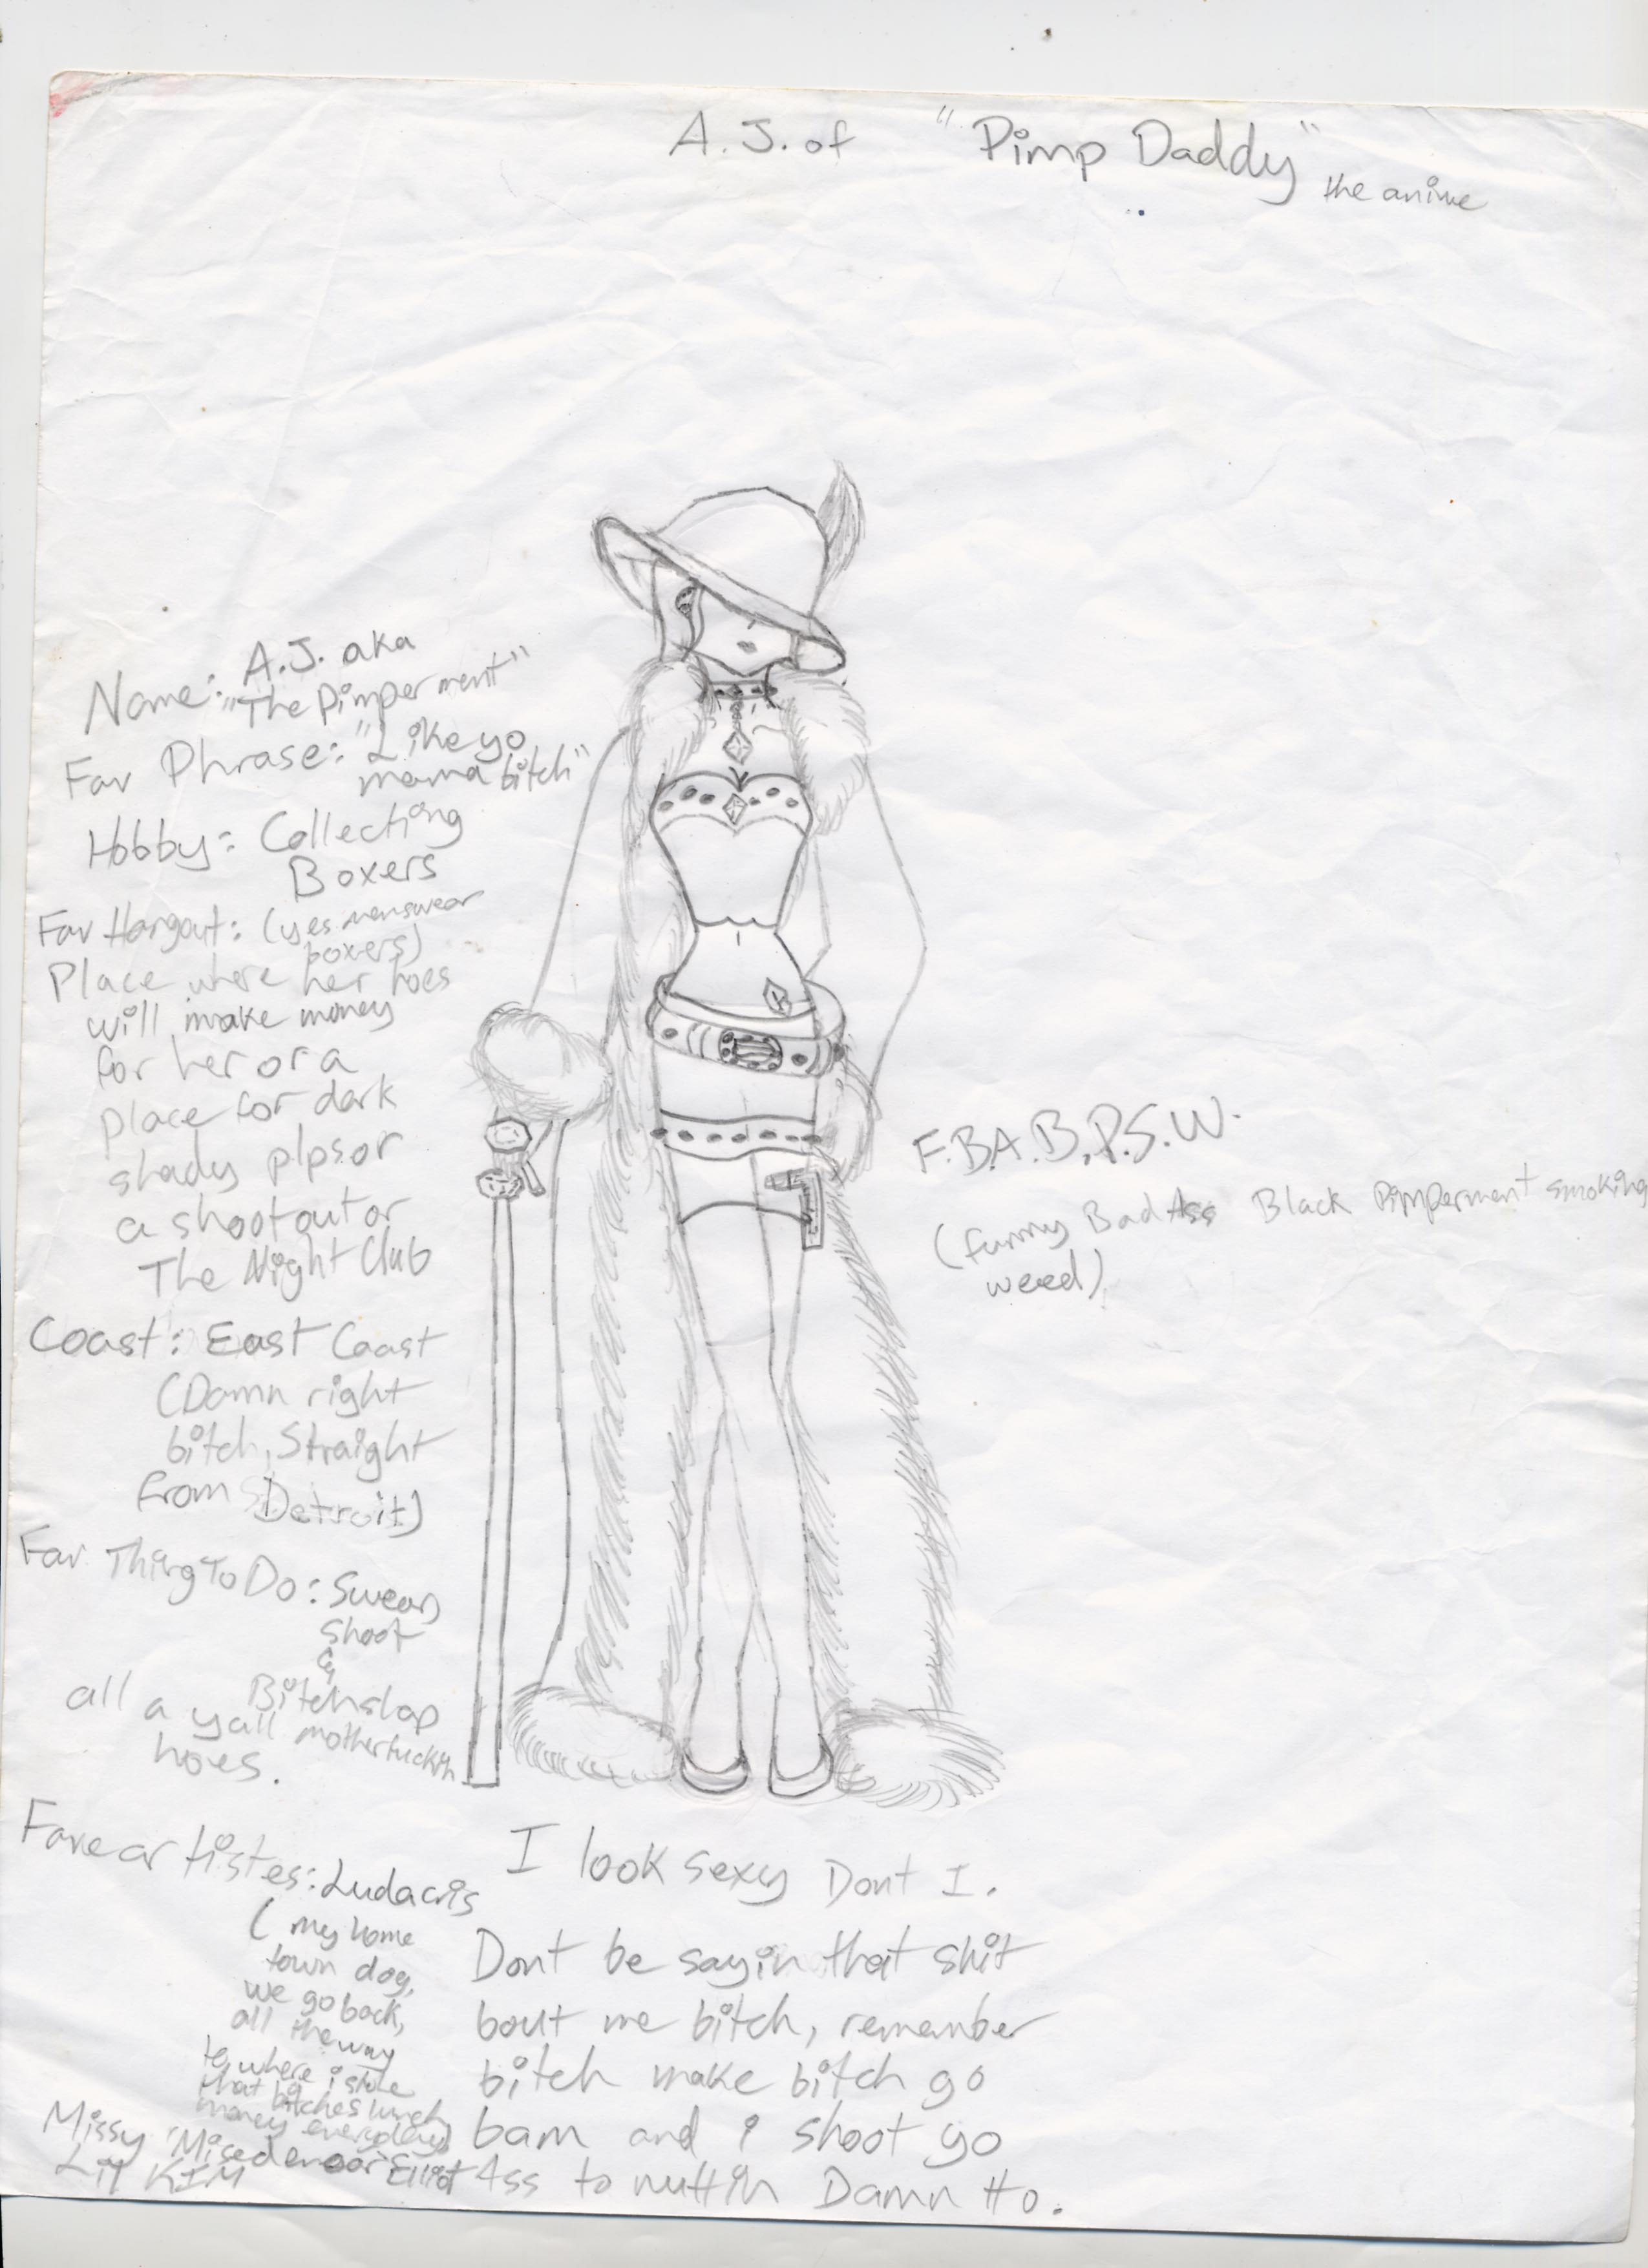 A.J. of "Pimp Daddy" the anime
Name: A.J. aka
"The Pimperment"
Fav Phrase: "Like yo
mama bitch"
Hobby: Collecting
Boxers
(yes menswear
boxers)
Fav Hangout:
Place where her hoes
will make money
for her or a
place for dark
shady plps or
a shootout or
The Night Club
Coast: East Coast
(Damn right
bitch, Straight
from Detroit)
Fav Thing To Do: Swear,
Shoot
&
Bitchslap
all a yall motherfuckin
hoes.
Fave artistes: Ludacris
(my home
town dog,
we go back,
all the way
to where i stole
that bitches lunch
money everyday)
Missy "Misedemoor" Elliot
Lil KIM
F.B.A.B.P.S.W.
(funny Bad Ass Black Pimperment smoking
weed)
I look sexy Dont I.
Dont be sayin that shit
bout me bitch, remember
bitch make bitch go
bam and i shoot go
Ass to nuttin Damn Ho.